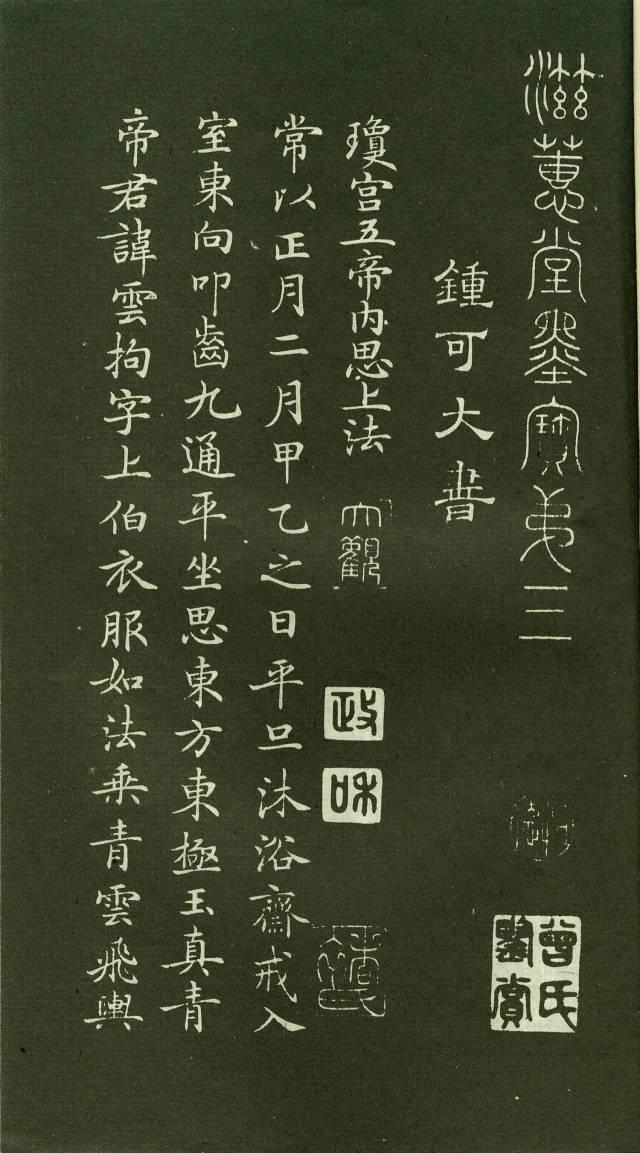 滋蕙堂墨寶弟三
曾氏
鑒賞
鍾可大書
瓊宮五帝內思上法
大觀
政
和
常以正月二月甲乙之日平旦沐浴齋戒入
室東向叩齒九通平坐思東方東極玉真青
帝君諱雲拘字上伯衣服如法乘青雲飛輿